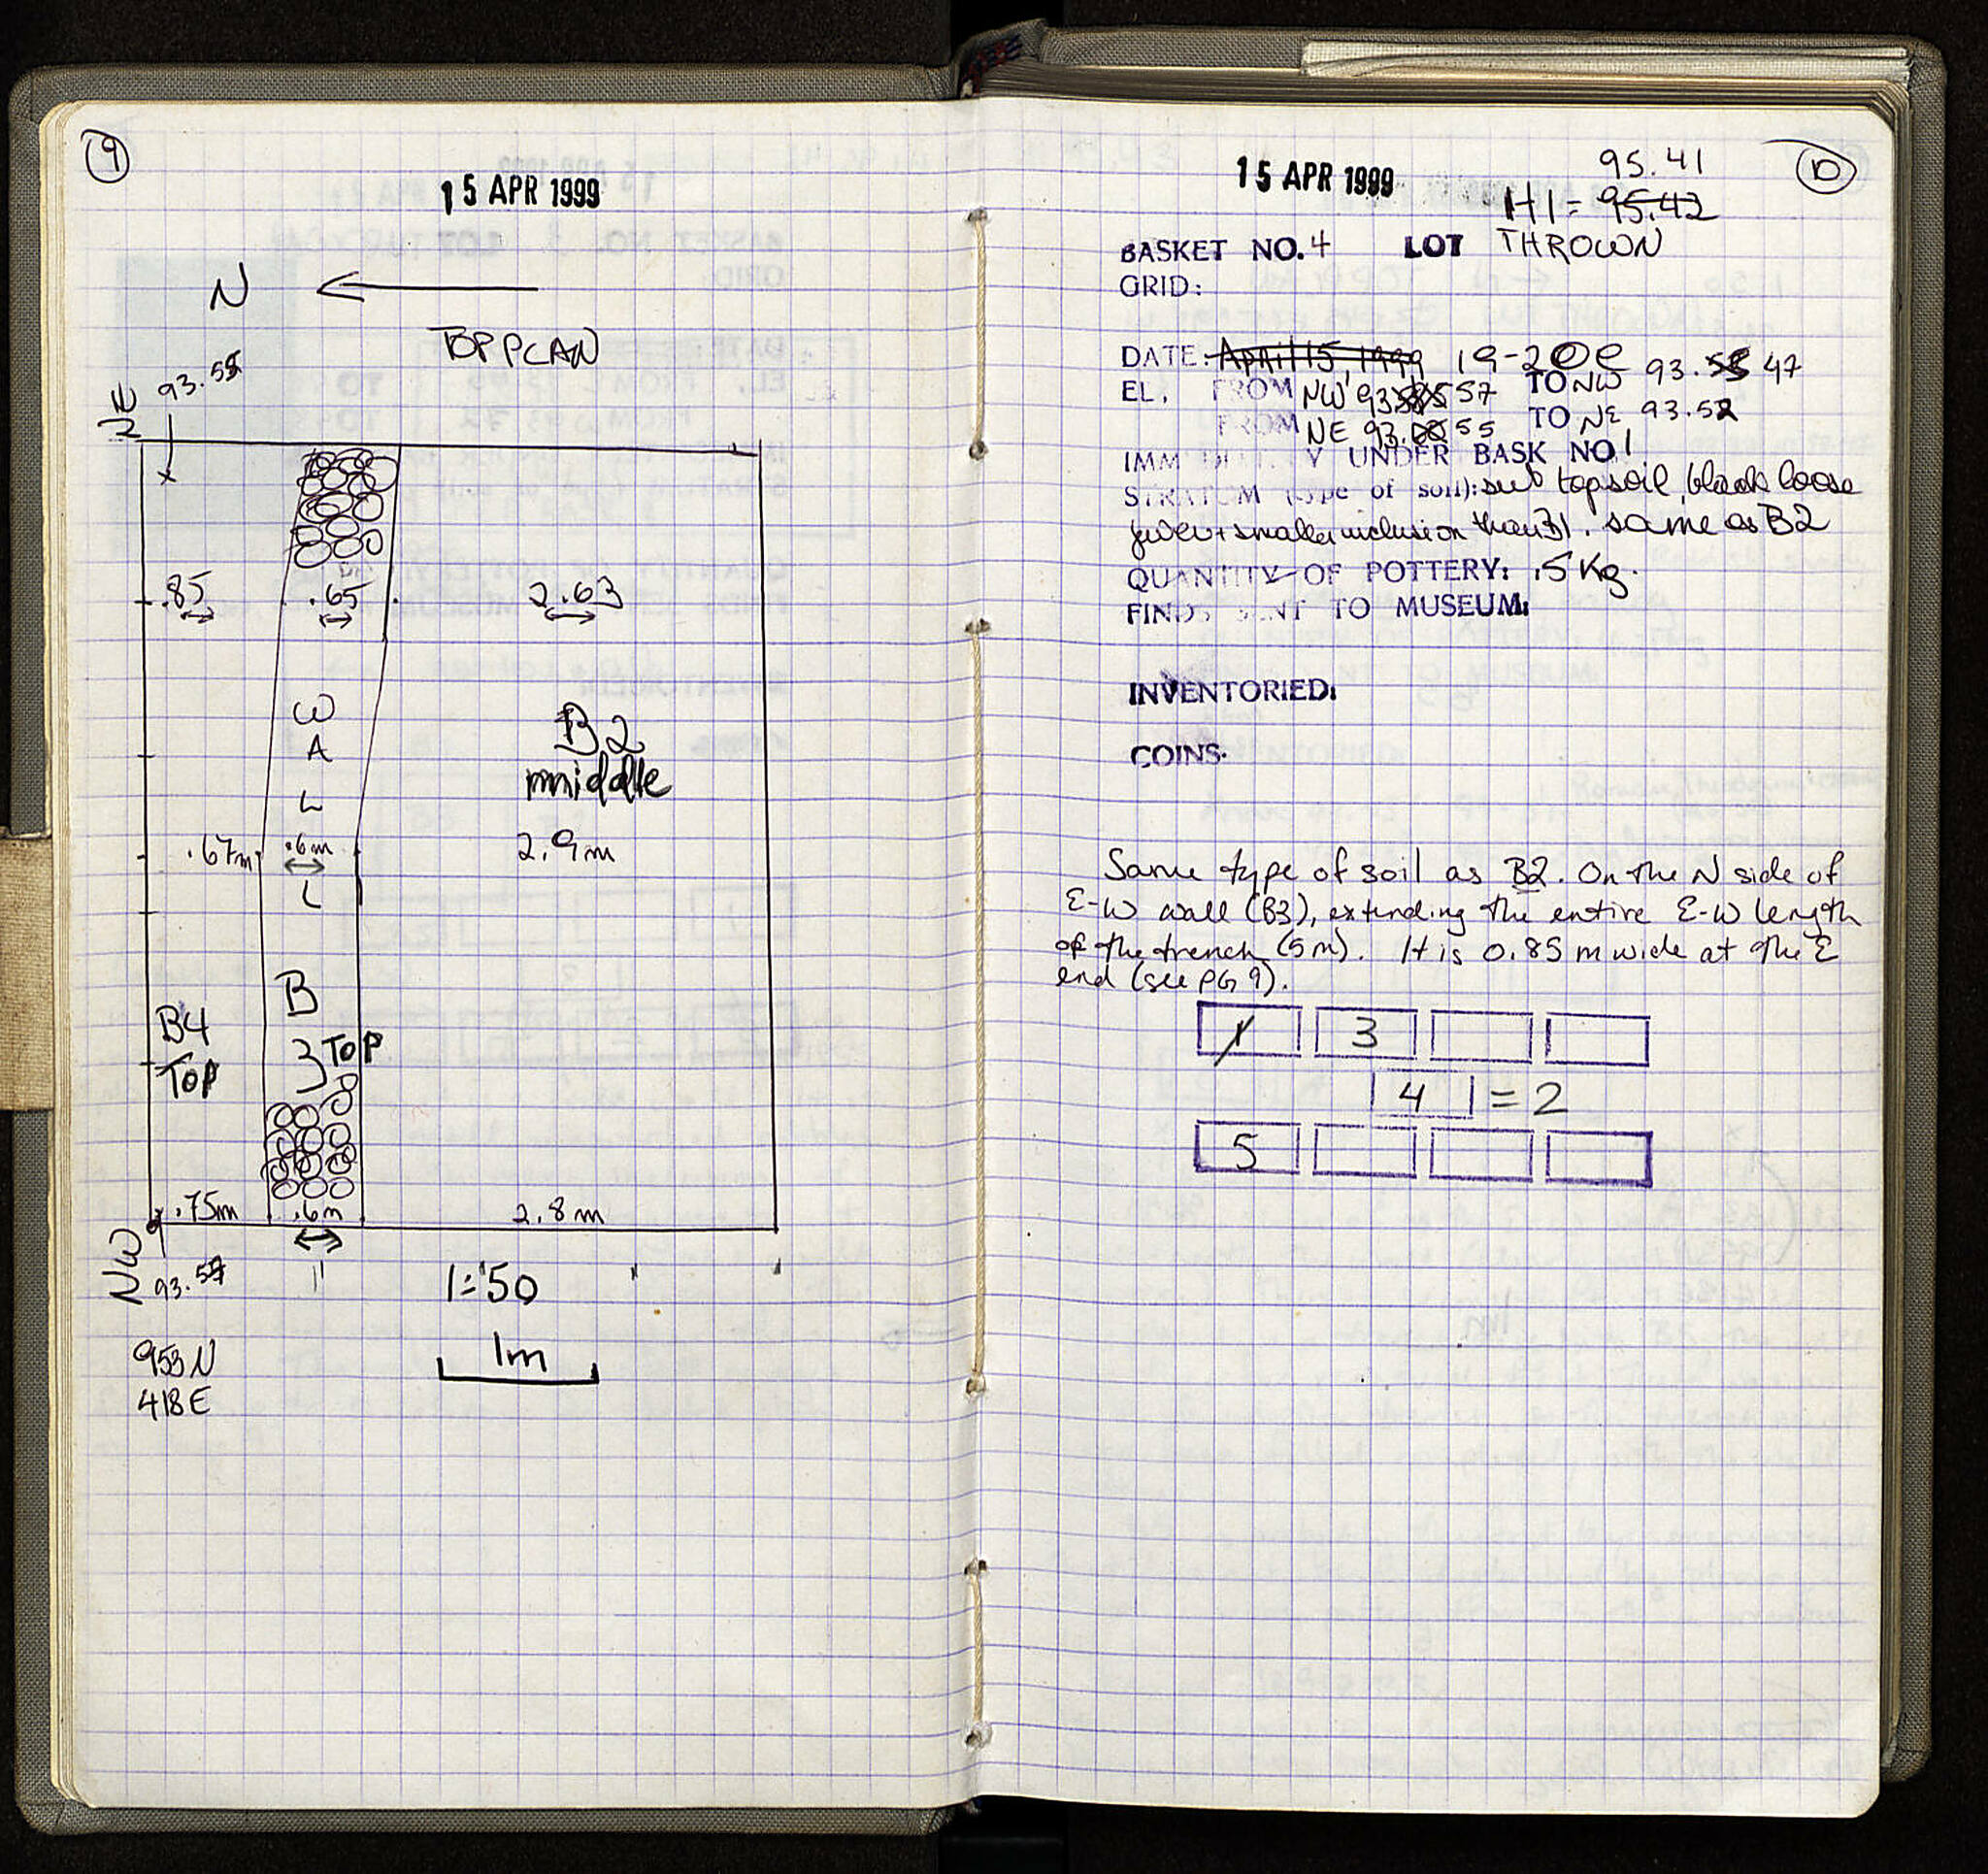 9
15 APR 1999
N
TOP PLAN
NE 93.55
.85 .65 2.63
W
A
L
L
B2
middle
.67m .6m 2.9m
B
3 TOP
B4
TOP
.75m .6m 2.8m
NW 93.57
1:50
1m
953 N
418 E
15 APR 1999
95.41
10
HI = 95.42
BASKET NO. 4 LOT THROWN
GRID:
DATE: April 15, 1999 19-20e
EL. FROM NW 93. 57 TO NW 93. 47
FROM NE 93. 55 TO NE 93.52
IMM UNDER BASK NO 1
STRATUM (type of soil): sub topsoil, black loose
fewer + smaller inclusion than B1. same as B2
QUANTITY OF POTTERY: .5 Kg.
FINDS SENT TO MUSEUM:
INVENTORIED:
COINS.
Same type of soil as B2. On the N side of
E-W wall (B3), extending the entire E-W length
of the trench (5m). It is 0.85 m wide at the E
end (see PG 9).
1 3
4 = 2
5